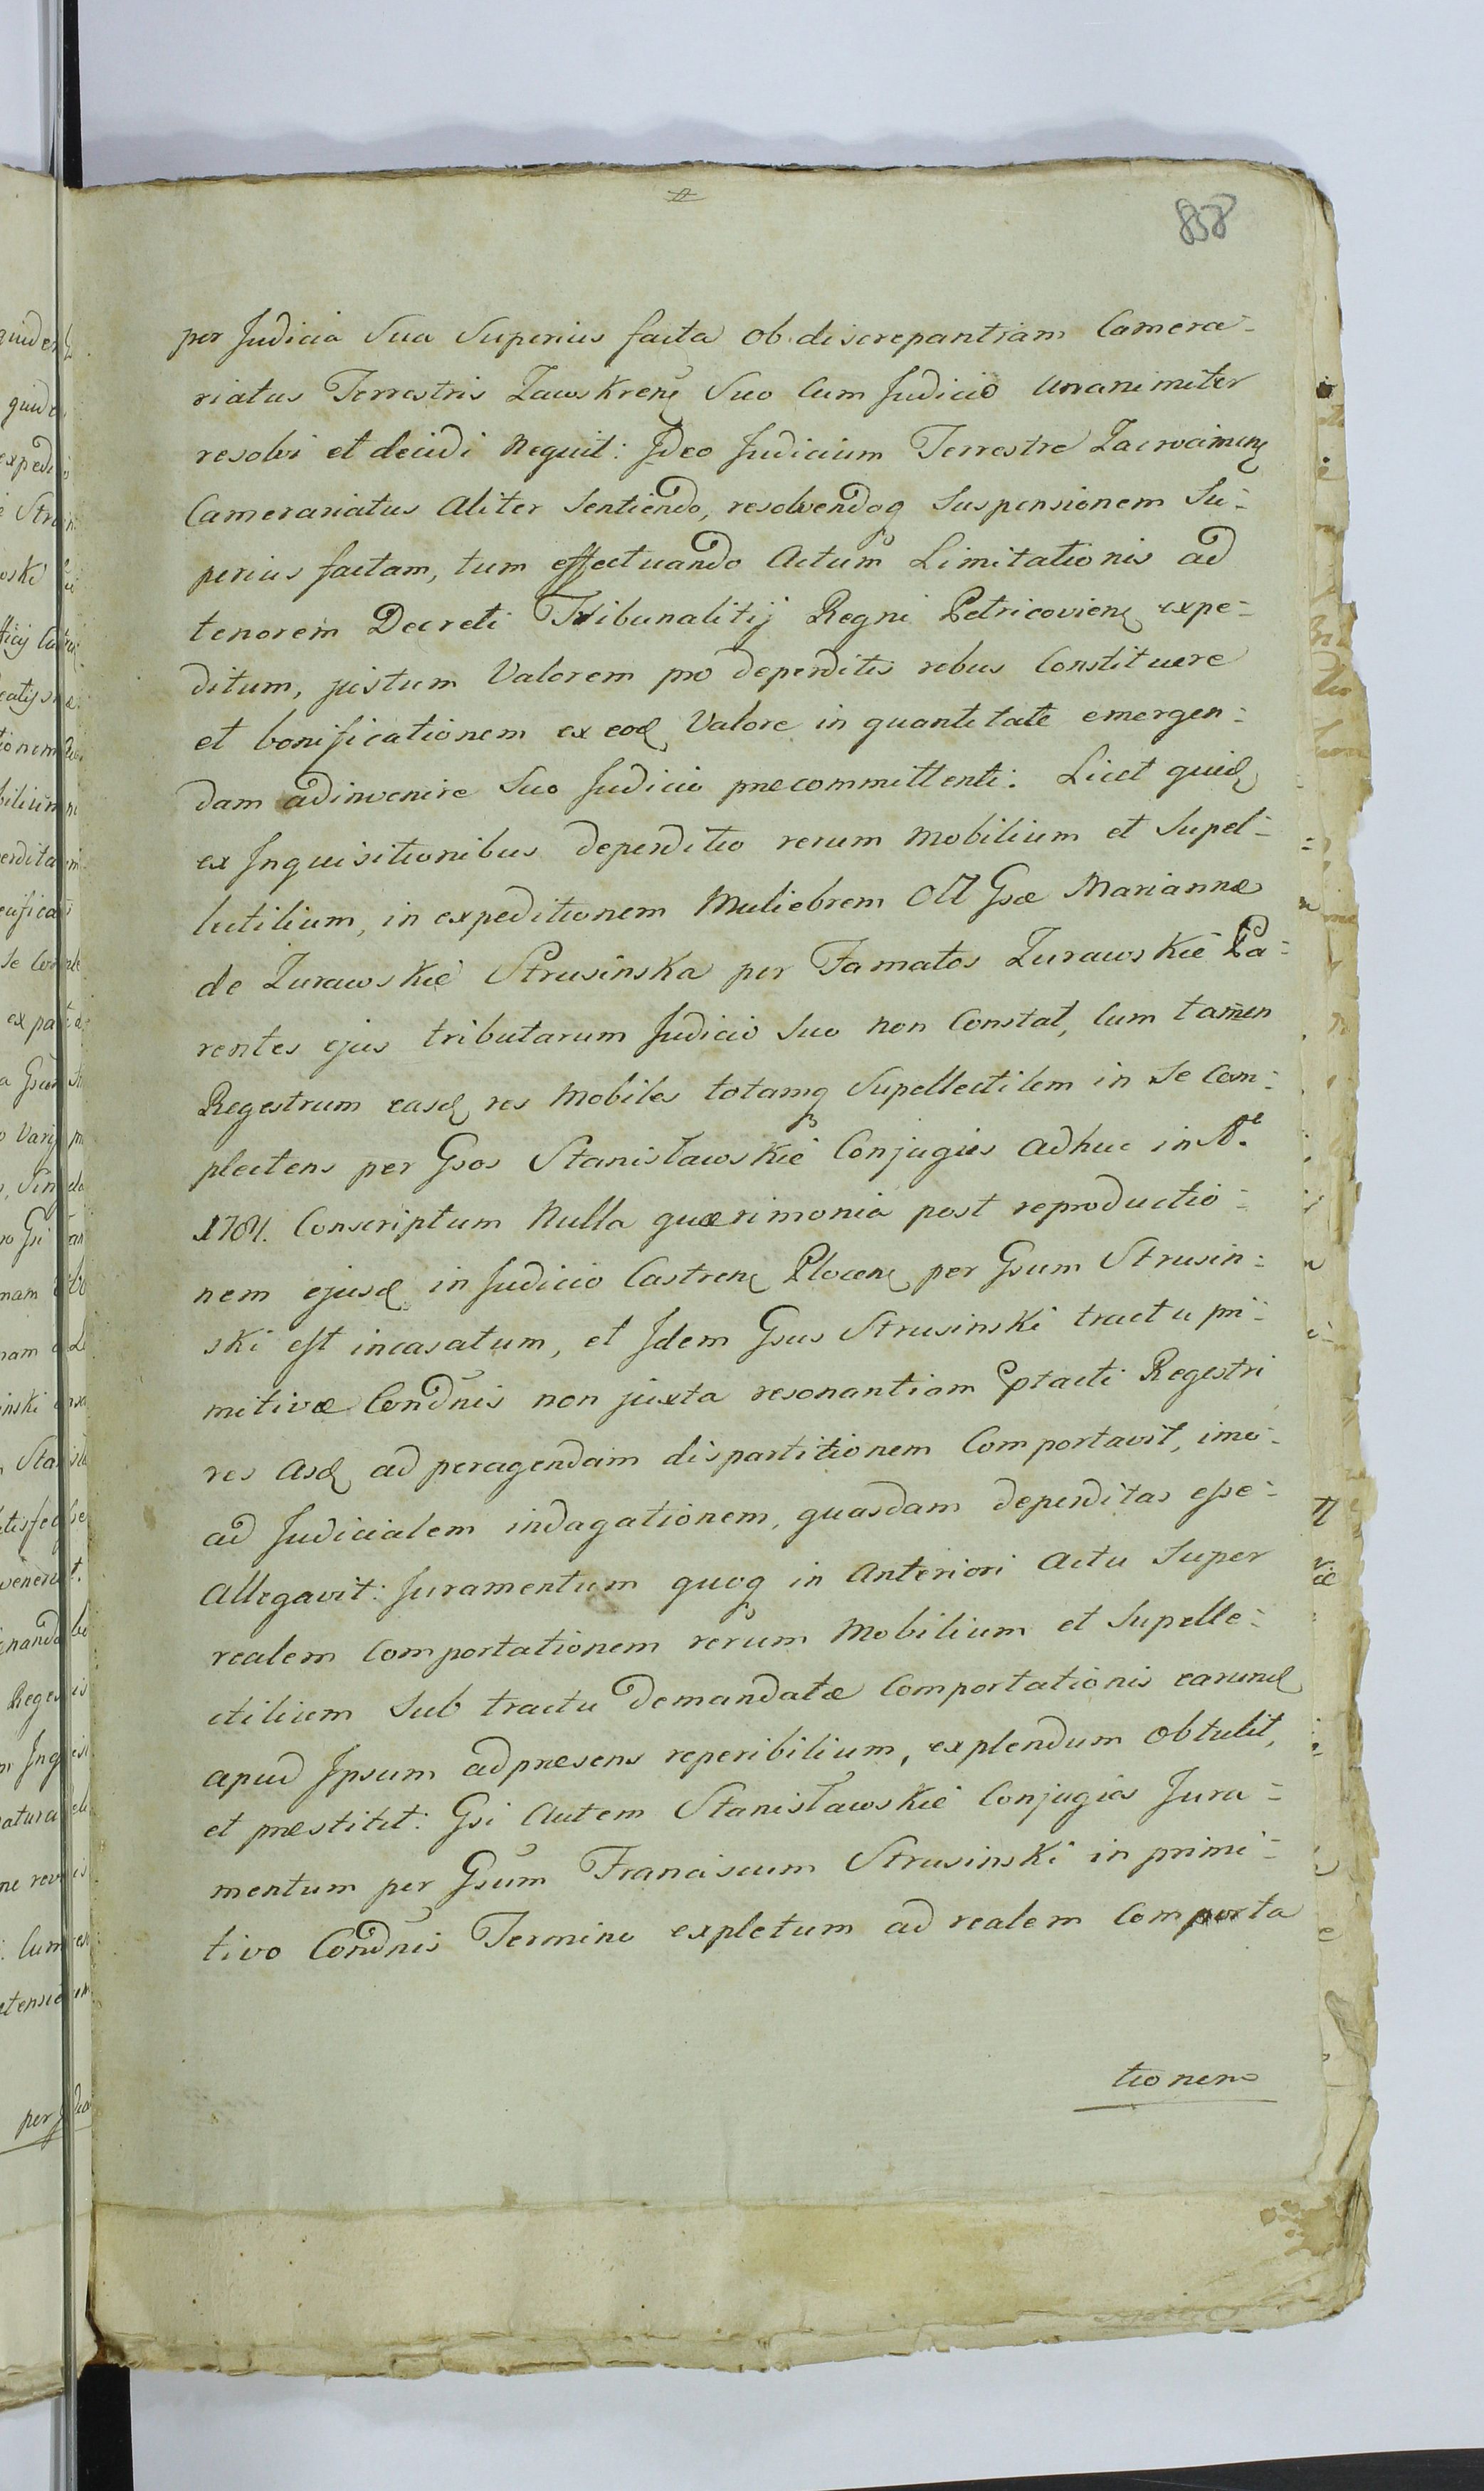 858
per Judicia Sua Superius facta ob discrepantiam Camera-
riatus Terrestris Zawskrenę Suo Cum Judicio Unanimiter
resolvi et decidi Nequit: Ideo Judicium Terrestre Zacrocimenę
Camerariatus Aliter Sentiendo, resolvendoq Suspensionem Su-
perius factam, tum effectuando Actum Limitationis ad
tenorem Decreti Tribunalitij Regni Petricovienę expe-
ditum, justum Valorem pro deperditis rebus Constituere
et bonificationem ex eod Valore in quantitate emergen-
dam adinvenire Suo Judicio præcommittenti: Licet quid
ex Inquisitionibus deperditio rerum Mobilium et Supel-
lectilium, in expeditionem Muliebrem Olł Gsæ Mariannæ
de Zurawskie Strusinska per Famatos Zurawskie Pa-
rentes ejus tributarum Judicio Suo non Constat, Cum tamen
Regestrum easd res Mobiles totamq Supellectilem in Se Com-
plectens per Gsos Stanisławskie Conjuges adhuc in A.
1781. Conscriptum Nulla quærimonia post reproductio-
nem ejusd in Judicio Castrenę Plocenę per Gsum Strusin-
ski est incasatum, et Idem Gsus Strusinski tractu pri-
mitivæ Condnis non juxta resonantiam ptacti Regestri
res Asd ad peragendam dispartitionem Comportavit, imo
ad Judicialem indagationem, quasdam deperditas esse
Allegavit: Juramentum quoq in Anteriori Actu Super
realem Comportationem rerum Mobilium et Supelle-
ctilium Sub tractu Demandatæ Comportationis earund
apud Ipsum adpræsens reperibilium, explendum Obtulit,
et præstitit: Gsi Autem Stanisławskie Conjuges Jura-
mentum per Gsum Franciscum Strusinski in primi-
tivo Condnis Termino expletum ad realem Comporta
tionem